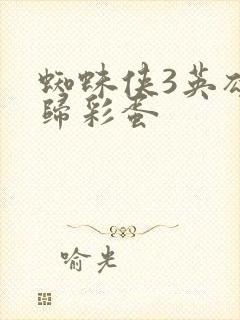 蜘蛛侠3英雄
歸彩蛋
喻光